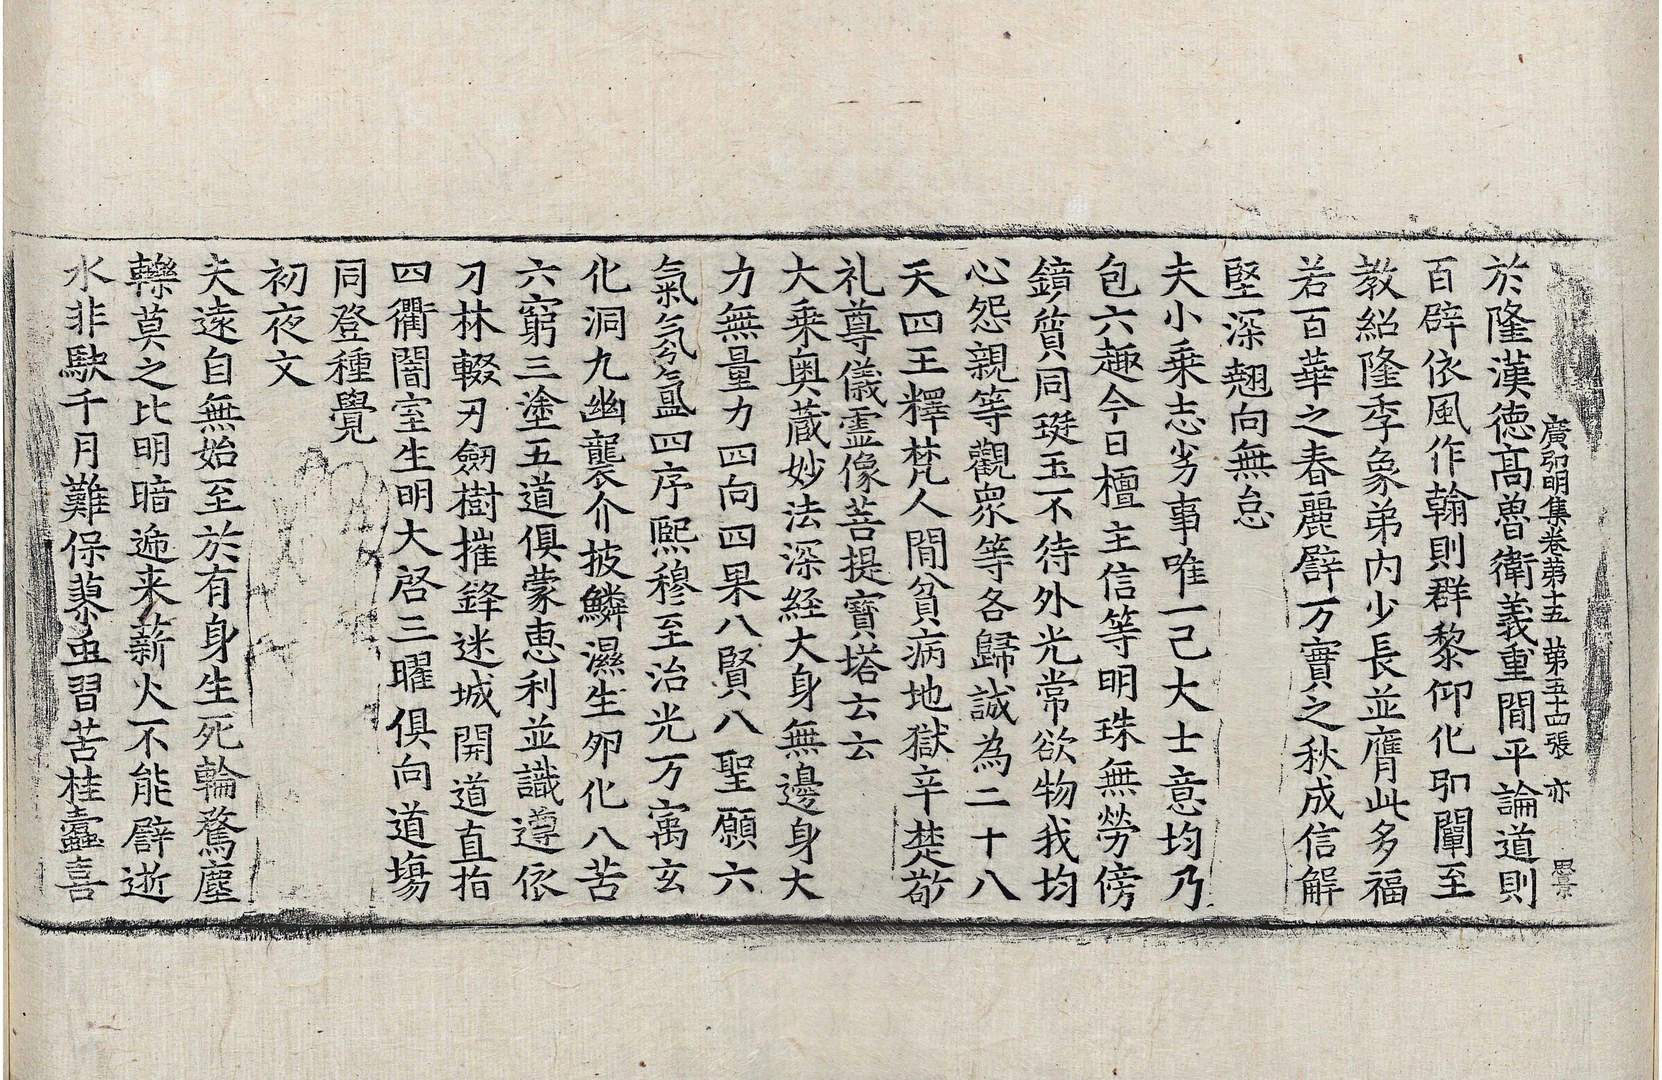 廣弘明集卷第十五 第五十四張 亦 思景
於隆漢徳髙魯衛義重閒平論道則
百辟依風作翰則群黎仰化卽闡至
教紹隆季象弟内少長並膺此多福
若百華之春麗譬万實之秋成信解
堅深翹向無怠
夫小乗志劣事唯一己大士意均乃
包六趣今日檀主信等明珠無勞傍
鏡質同珽玉不待外光常欲物我均
心怨親等觀衆等各歸誠為二十八
天四王釋梵人閒貧病地獄辛楚敬
礼尊儀霊像菩提寳塔云云
大乗奥蔵妙法深経大身無邊身大
力無量力四向四果八賢八聖願六
氣氛氳四序熙穆至治光万㝢玄
化洞九幽襲介披鱗濕生夘化八苦
六窮三塗五道俱蒙恵利並識遵依
刀林輟刃劒樹摧鋒迷城開道直指
四衢闇室生明大啓三曜俱向道場
同登種覺
初夜文
夫遠自無始至於有身生死輪騖塵
轢莫之比明暗遞来薪火不能譬逝
水非駃千月難保蓼虫習苦桂蠹喜